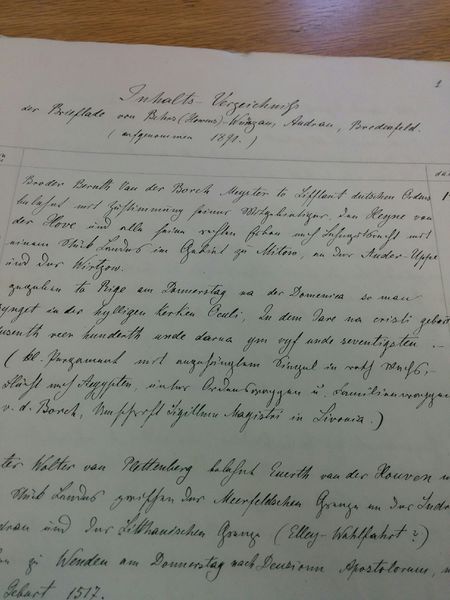 1
Inhalts-Verzeichniß
der Brieflade von Behrs (Howens)-Würzau, Andrau, Bredenfeld.
(aufgenommen 1891.)
Broder Bernth Van der Borch Meyster to Lifflant dutschen Ordens
belehnt mit Zustimmung seiner Mitgebietiger, den Heyne von
der Hove und alle seine rechten Erben nach Lehngutsrecht mit
einem Stück Landes im Gebiet zu Mitow, an der
und der Wirtzow.
gegeben to Rige am Donnerstag na der Domenica so man
synget in der hylligen Kerken Oculi, In dem Jare na cristi gebort
dusenth veer hunderth unde darna ym vyf unde seventigsten
(bl. Pergament mit angehängtem Siegel in roth Wachs,
Flucht nach Aegypten, unten Ordenswappen u. Familienwappen
v. d. Borch, Umschrift Sigillum Magistri in Livonia.)
Walter van Plettenberg belehnt Everth van der Houven
Stück Landes zwischen der Meerfeldschen Grenze an der
und der Litthauischen Grenze (Elley-Wahlfahrt?)
zu Wenden am Donnerstag nach Apostolorum,
Geburt 1517.